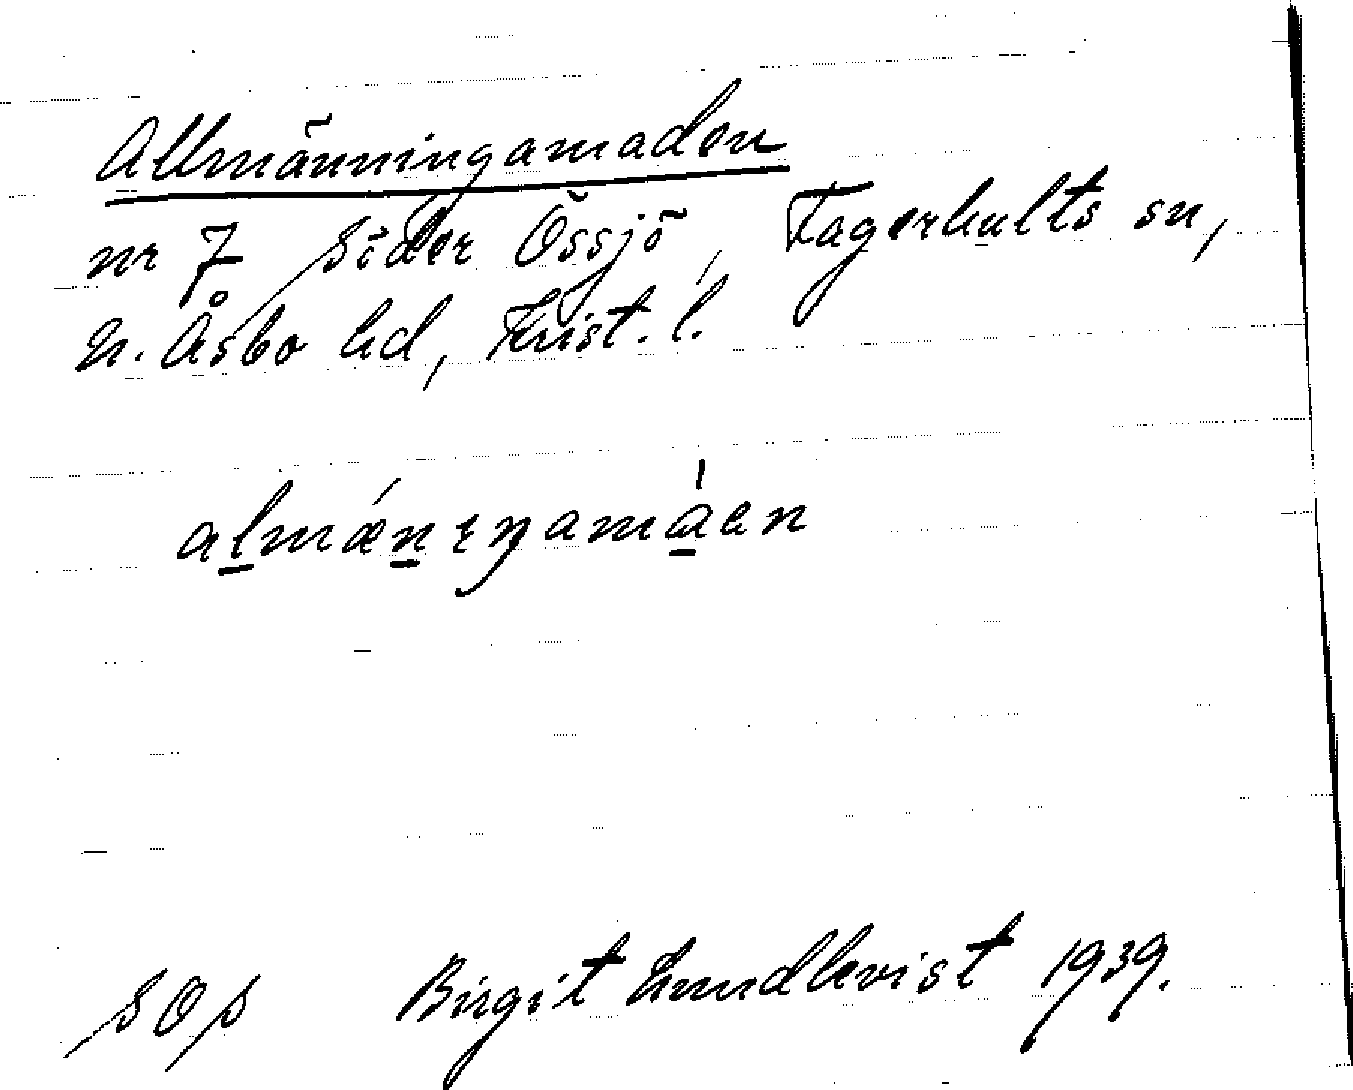 Allmänningamaden
nr 7 Söder Össjö, Fagerhults sn,
N. Åsbo hd, Krist. l.
almǽnıŋamáen
SOS Birgit Lundkvist 1939.